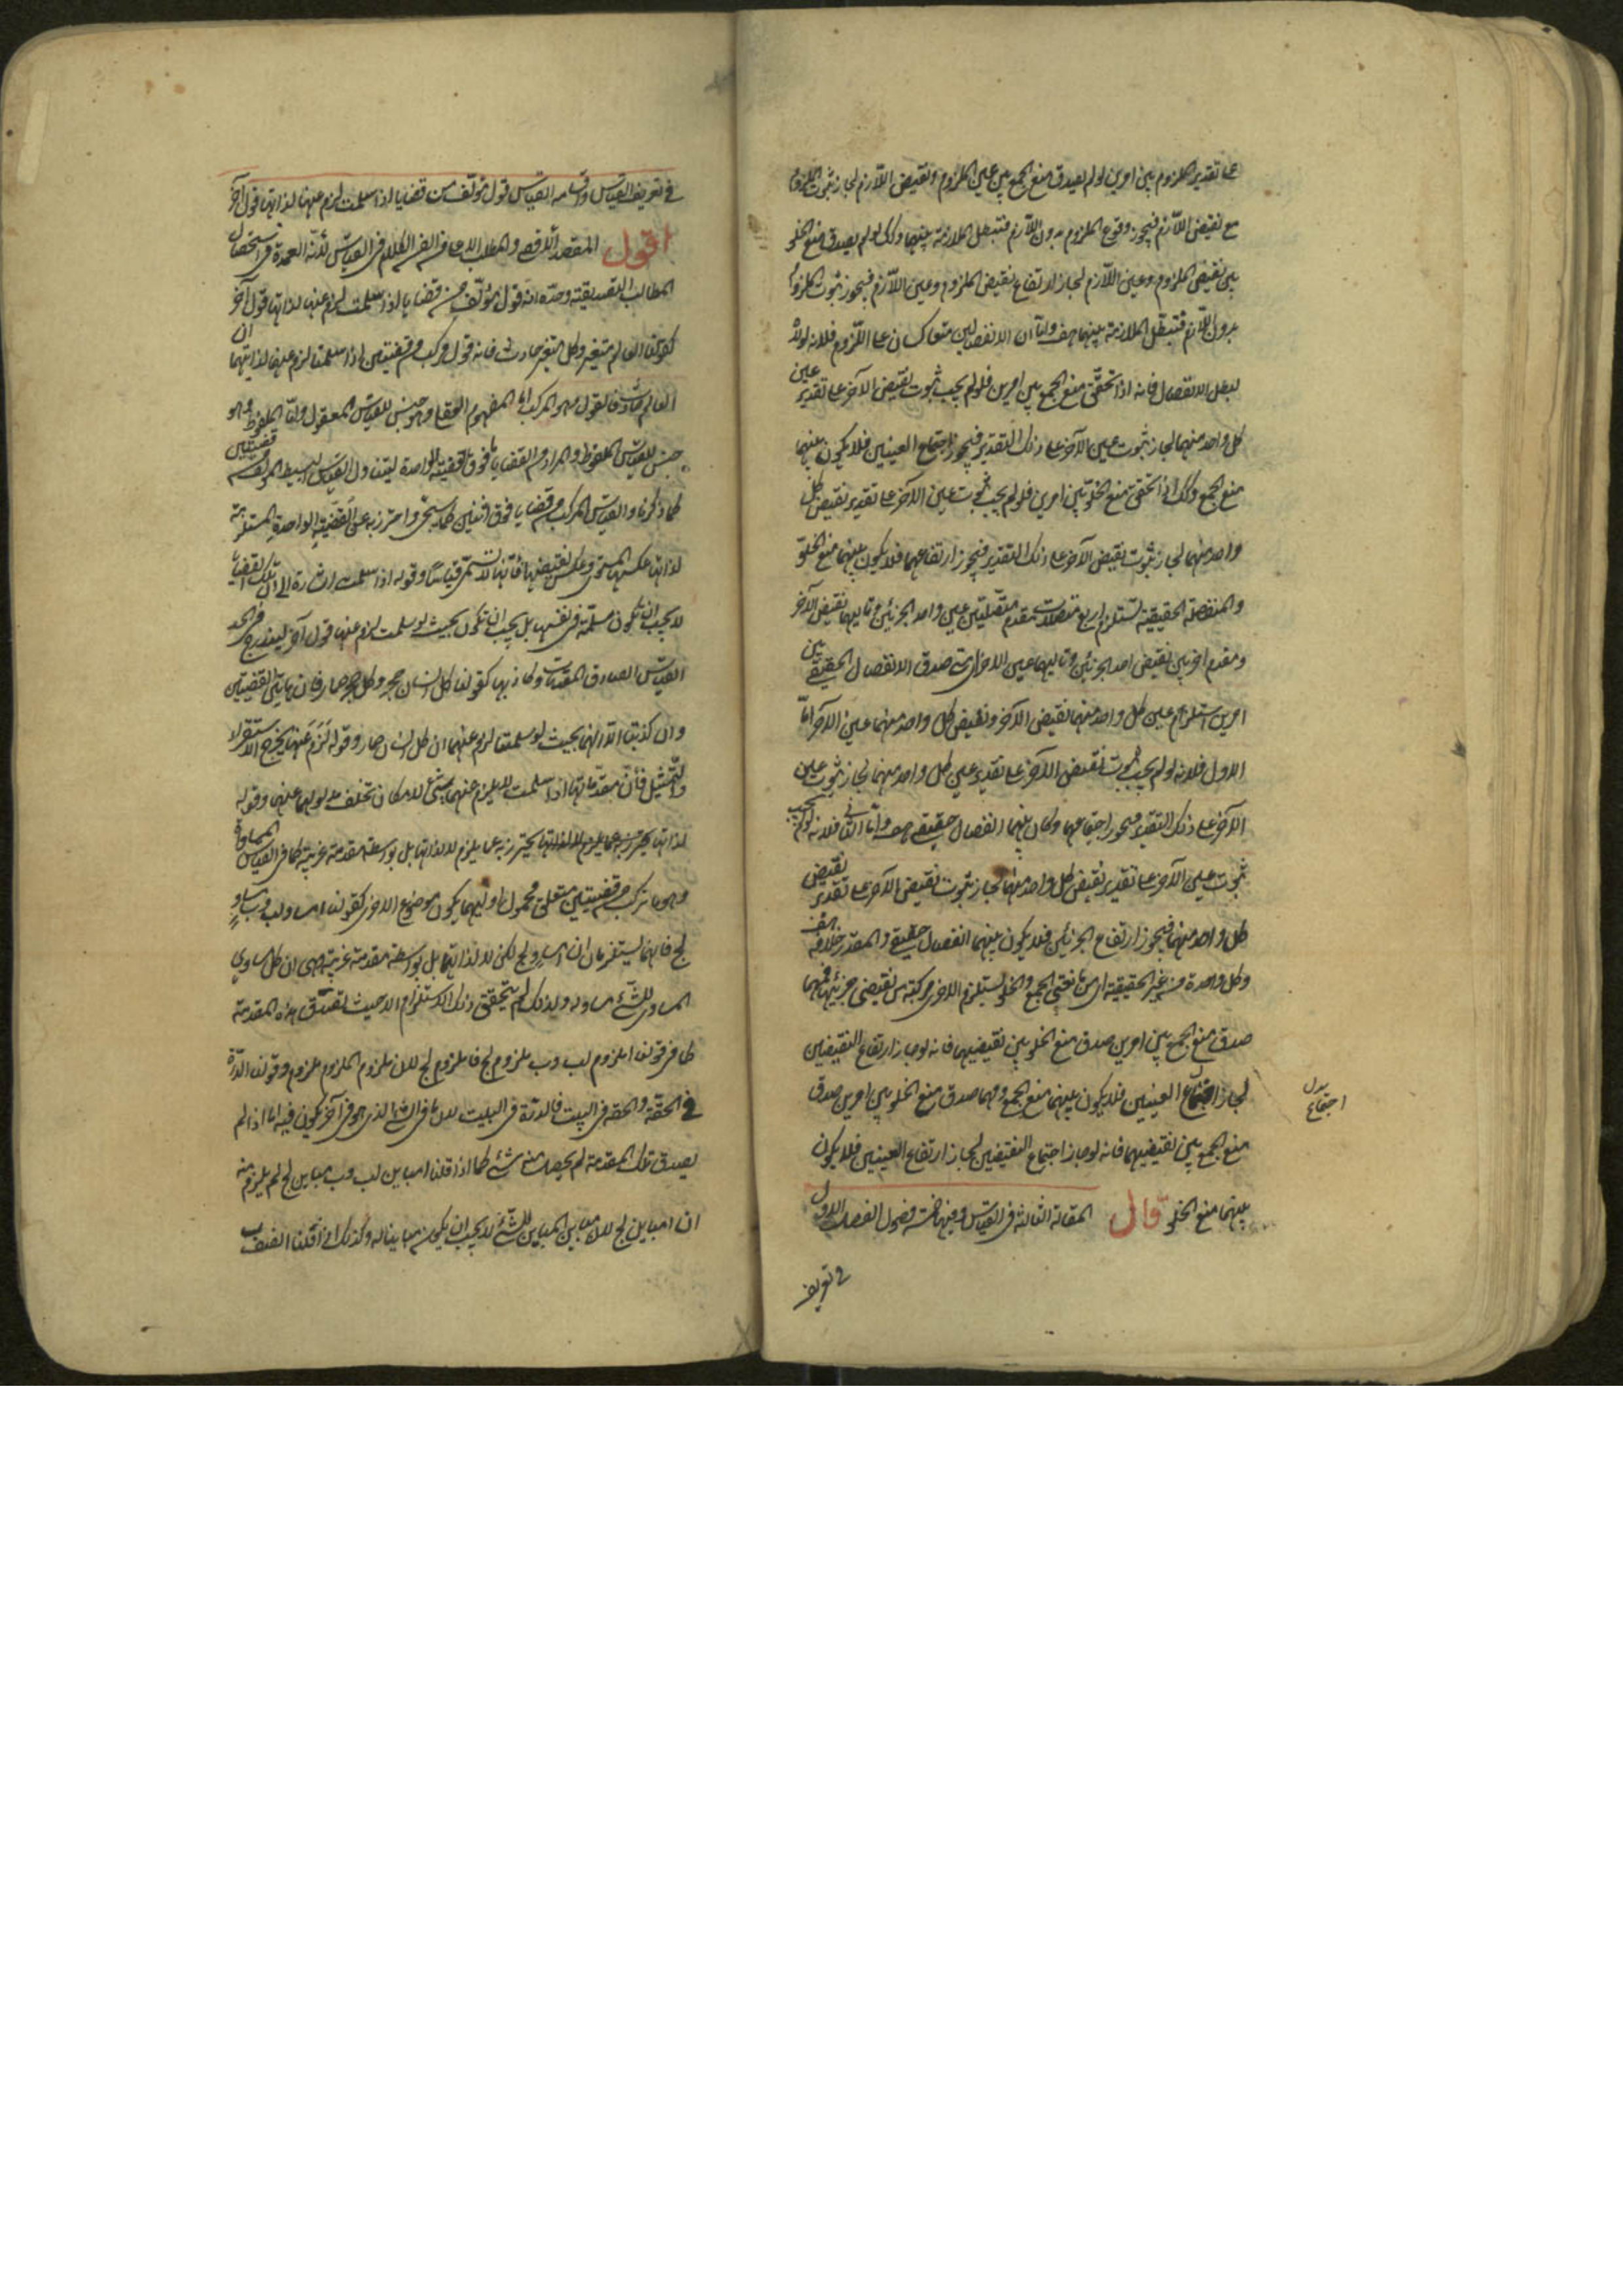 على تقدير الملزوم بين امرين لو لم يصدق منع الجمع بين عين الملزوم ونقيض اللازم لجاز ثبوت الملزوم
مع نقيض اللازم فيجوز وقوع الملزوم بدون اللازم فتبطل الملازمة بينهما وكذلك لو لم يصدق منع الخلو
بين نقيض الملزوم وعين اللازم لجاز ارتفاع نقيض الملزوم وعين اللازم فيجوز ثبوت الملزوم
بدون اللازم فتبطل الملازمة بينهما هف واما ان الانفصالين متعاكسان على اللزوم فلانه لولاه
لبطل الانفصال فانه اذا تحقق منع الجمع بين امرين فلو لم يجب ثبوت نقيض الآخر على تقدير عين
كل واحد منهما لجاز ثبوت عين الآخر على ذلك التقدير فيجوز اجتماع العينين فلا يكون بينهما
منع الجمع وكذلك اذا تحقق منع الخلو بين امرين فلو لم يجب ثبوت عين الآخر على تقدير نقيض كل
واحد منهما لجاز ثبوت نقيض الآخر على ذلك التقدير فيجوز ارتفاعهما فلا يكون بينهما منع الخلو
والمنفصلة الحقيقية تستلزم اربع متصلات مقدم متصلتين عين واحد الجزئين وتاليهما نقيض الآخر
ومقدم اخريين نقيض احد الجزئين وتاليهما عين الاخر اى متى صدق الانفصال الحقيقي بين
امرين استلزم عين كل واحد منهما نقيض الآخر ونقيض كل واحد منهما عين الآخر اما
الاول فلانه لو لم يجب ثبوت نقيض الآخر على تقدير عين كل واحد منهما لجاز ثبوت عين
الآخر على ذلك التقدير فيجوز اجتماعهما وكان بينهما انفصال حقيقي هف واما الثانى فلانه لو لم يجب
ثبوت عين الآخر على تقدير نقيض كل واحد منهما لجاز ثبوت نقيض الآخر على تقدير نقيض
كل واحد منهما فيجوز ارتفاع الجزئين فلا يكون بينهما انفصال حقيقي والمقدر خلافه هف
وكل واحدة من غير الحقيقية اى من مانعتي الجمع والخلو تستلزم الاخرى مركبة من نقيضي جزئيها فمهما
صدق منع الجمع بين امرين صدق منع الخلو بين نقيضيهما فانه لو جاز ارتفاع النقيضين
لجاز اجتماع العينين فلا يكون بينهما منع الجمع ومهما صدق منع الخلو بين امرين صدق
بدل
اجتماع
منع الجمع بين نقيضيهما فانه لو جاز اجتماع النقيضين لجاز ارتفاع العينين فلا يكون
بينهما منع الخلو قال المقالة الثالثة فى القياس وفيها خمسة فصول الفصل الاول
فى تعريف
فى تعريف القياس واقسامه القياس قول مؤلف من قضايا اذا سلمت لزم عنها لذاتها قول آخر
اقول المقصد الاقصى والمطلب الاعلى من الفن الكلام فى القياس لانه العمدة فى استحصال
المطالب التصديقية وحده انه قول مؤلف من قضايا اذا سلمت لزم عنها لذاتها قول آخر
كقولنا العالم متغير وكل متغير حادث فانه قول مركب من قضيتين اذا سلمتا لزم عنهما لذاتيهما ان
العالم حادث فالقول وهو المركب اما المفهوم العقلى وهو جنس للقياس المعقول واما الملفوظ وهو
جنس للقياس الملفوظ والمراد من القضايا ما فوق قضية الواحدة ليتناول القياس البسيط المؤلف من قضيتين
كما ذكرنا والقياس المركب من قضايا فوق اثنتين كما سيجئ واحترز به عن القضية الواحدة المستلزمة
لذاتها عكسها المستوى وعكس نقيضها فانها لا تسمى قياسا وقوله اذا سلمت اشارة الى ان تلك القضايا
لا يجب ان تكون مسلمة فى نفسها بل يجب ان تكون بحيث لو سلمت لزم عنها قول آخر ليندرج فى الحد
القياس الصادق المقدمات وكاذبها كقولنا كل انسان حجر وكل حجر حمار فان هاتين القضيتين
وان كذبتا الا انهما بحيث لو سلمتا لزم عنهما ان كل انسان حمار وقوله لزم عنها يخرج الاستقراء
والتمثيل فان مقدماتها اذا سلمت لا يلزم عنهما شئ لامكان تخلف مدلوليهما عنهما وقوله
لذاتها يحترز به عما يلزم لا لذاتها بل بواسطة مقدمة غريبة كما فى القياس المساواة
وهو ما يتركب من قضيتين متعلق محمول اوليهما يكون موضوع الاخرى كقولنا ا مساو لب وب مساو
لج فانهما يستلزمان ان ا مساو لج لكن لا لذاتيهما بل بواسطة مقدمة غريبة وهى ان كل مساوى
المساوى للشئ مساو له ولذلك لم يتحقق ذلك الاستلزام الا حيث تصدق هذه المقدمة
كما فى قولنا ا ملزوم لب وب ملزوم لج فا ملزوم لج لان ملزوم الملزوم ملزوم وقولنا الدرة
فى الحقة والحقة فى البيت فالدرة فى البيت لان ما فى الشئ الذى هو فى آخر يكون فيه اما اذا لم
يصدق تلك المقدمة لم يحصل منه شئ كما اذا قلنا ا مباين لب وب مباين لج لم يلزم منه
ان ا مباين لج لان مباين المباين للشئ لا يجب ان يكون مباينا له وكذلك اذا قلنا ا نصف ب